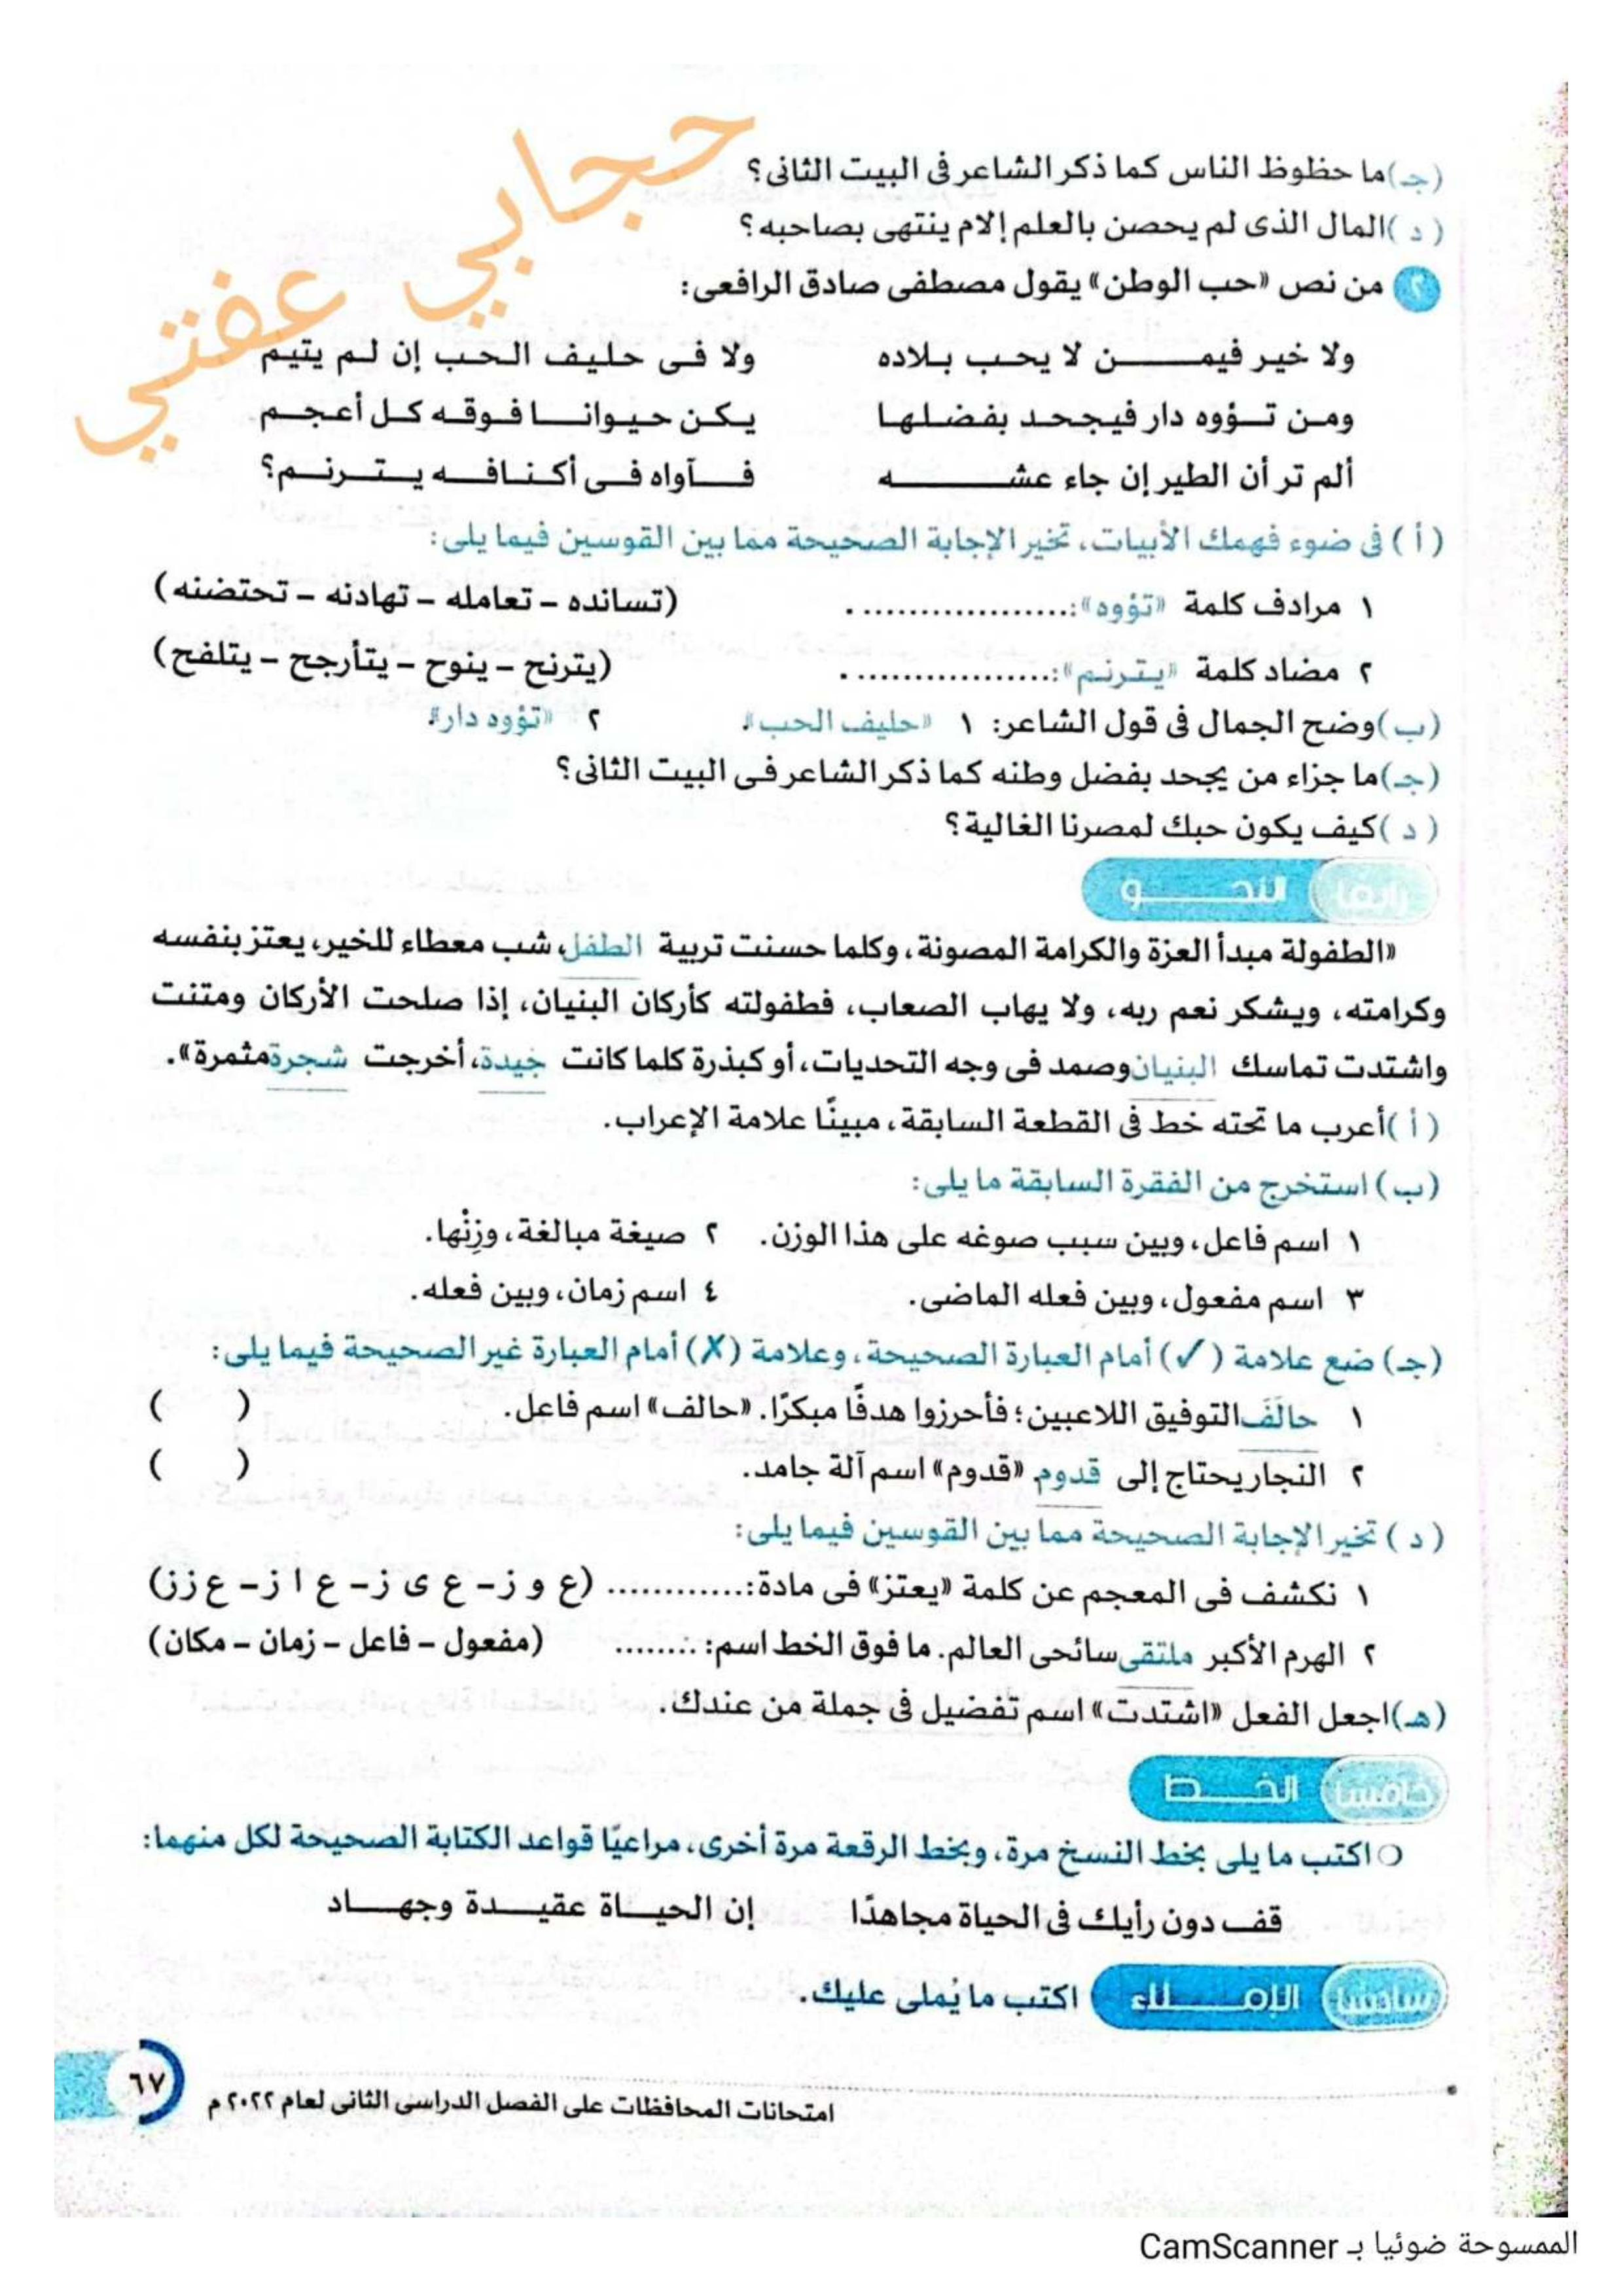 حجابي عفتي
(جـ) ما حظوظ الناس كما ذكر الشاعر فى البيت الثانى؟
( د ) المال الذى لم يحصن بالعلم إلام ينتهى بصاحبه؟
٢ من نص «حب الوطن» يقول مصطفى صادق الرافعى:
ولا خير فيمـــــــن لا يحب بــلاده ولا فـى حليف الـحـب إن لـم يتيم
ومـن تـــؤوه دار فيجحـد بفضـلهـا يـكـن حـيـوانــــا فـوقـه كـل أعـجـــم
ألم تر أن الطير إن جاء عشــــــــــه فــــآواه فــى أكـنـافــــه يــتــرنــم؟
( أ ) فى ضوء فهمك الأبيات، تخير الإجابة الصحيحة مما بين القوسين فيما يلى:
١ مرادف كلمة «تؤوه»:................... (تسانده – تعامله – تهادنه – تحتضنه)
٢ مضاد كلمة «يـتـرنـم»:................... (يترنح – ينوح – يتأرجح – يتلفح)
(ب) وضح الجمال فى قول الشاعر: ١ «حليف الحب». ٢ «تؤوه دار».
(جـ) ما جزاء من يجحد بفضل وطنه كما ذكر الشاعر فـى البيت الثانى؟
( د ) كيف يكون حبك لمصرنا الغالية؟
رابعًا النحـــــو
«الطفولة مبدأ العزة والكرامة المصونة، وكلما حسنت تربية الطفل، شب معطاء للخير، يعتز بنفسه
وكرامته، ويشكر نعم ربه، ولا يهاب الصعاب، فطفولته كأركان البنيان، إذا صلحت الأركان ومتنت
واشتدت تماسك البنيان وصمد فى وجه التحديات، أو كبذرة كلما كانت جيدة، أخرجت شجرة مثمرة».
( أ ) أعرب ما تحته خط فى القطعة السابقة، مبينًا علامة الإعراب.
(ب) استخرج من الفقرة السابقة ما يلى:
١ اسم فاعل، وبين سبب صوغه على هذا الوزن. ٢ صيغة مبالغة، وزِنْها.
٣ اسم مفعول، وبين فعله الماضى. ٤ اسم زمان، وبين فعله.
(جـ) ضع علامة (✓) أمام العبارة الصحيحة، وعلامة (✗) أمام العبارة غير الصحيحة فيما يلى:
١ حالَفَ التوفيق اللاعبين؛ فأحرزوا هدفًا مبكرًا. «حالف» اسم فاعل. ( )
٢ النجار يحتاج إلى قدوم. «قدوم» اسم آلة جامد. ( )
( د ) تخير الإجابة الصحيحة مما بين القوسين فيما يلى:
١ نكشف فى المعجم عن كلمة «يعتز» فى مادة:............. (ع و ز – ع ى ز – ع ا ز – ع ز ز)
٢ الهرم الأكبر ملتقى سائحى العالم. ما فوق الخط اسم:......... (مفعول – فاعل – زمان – مكان)
(هـ) اجعل الفعل «اشتدت» اسم تفضيل فى جملة من عندك.
خامسًا الخـــــط
اكتب ما يلى بخط النسخ مرة، وبخط الرقعة مرة أخرى، مراعيًا قواعد الكتابة الصحيحة لكل منهما:
قف دون رأيك فى الحياة مجاهدًا إن الحيـــاة عقيـــدة وجهـــاد
سادسًا الإمــــلاء اكتب ما يُملى عليك.
امتحانات المحافظات على الفصل الدراسى الثانى لعام ٢٠٢٢ م ٦٧
الممسوحة ضوئيا بـ CamScanner